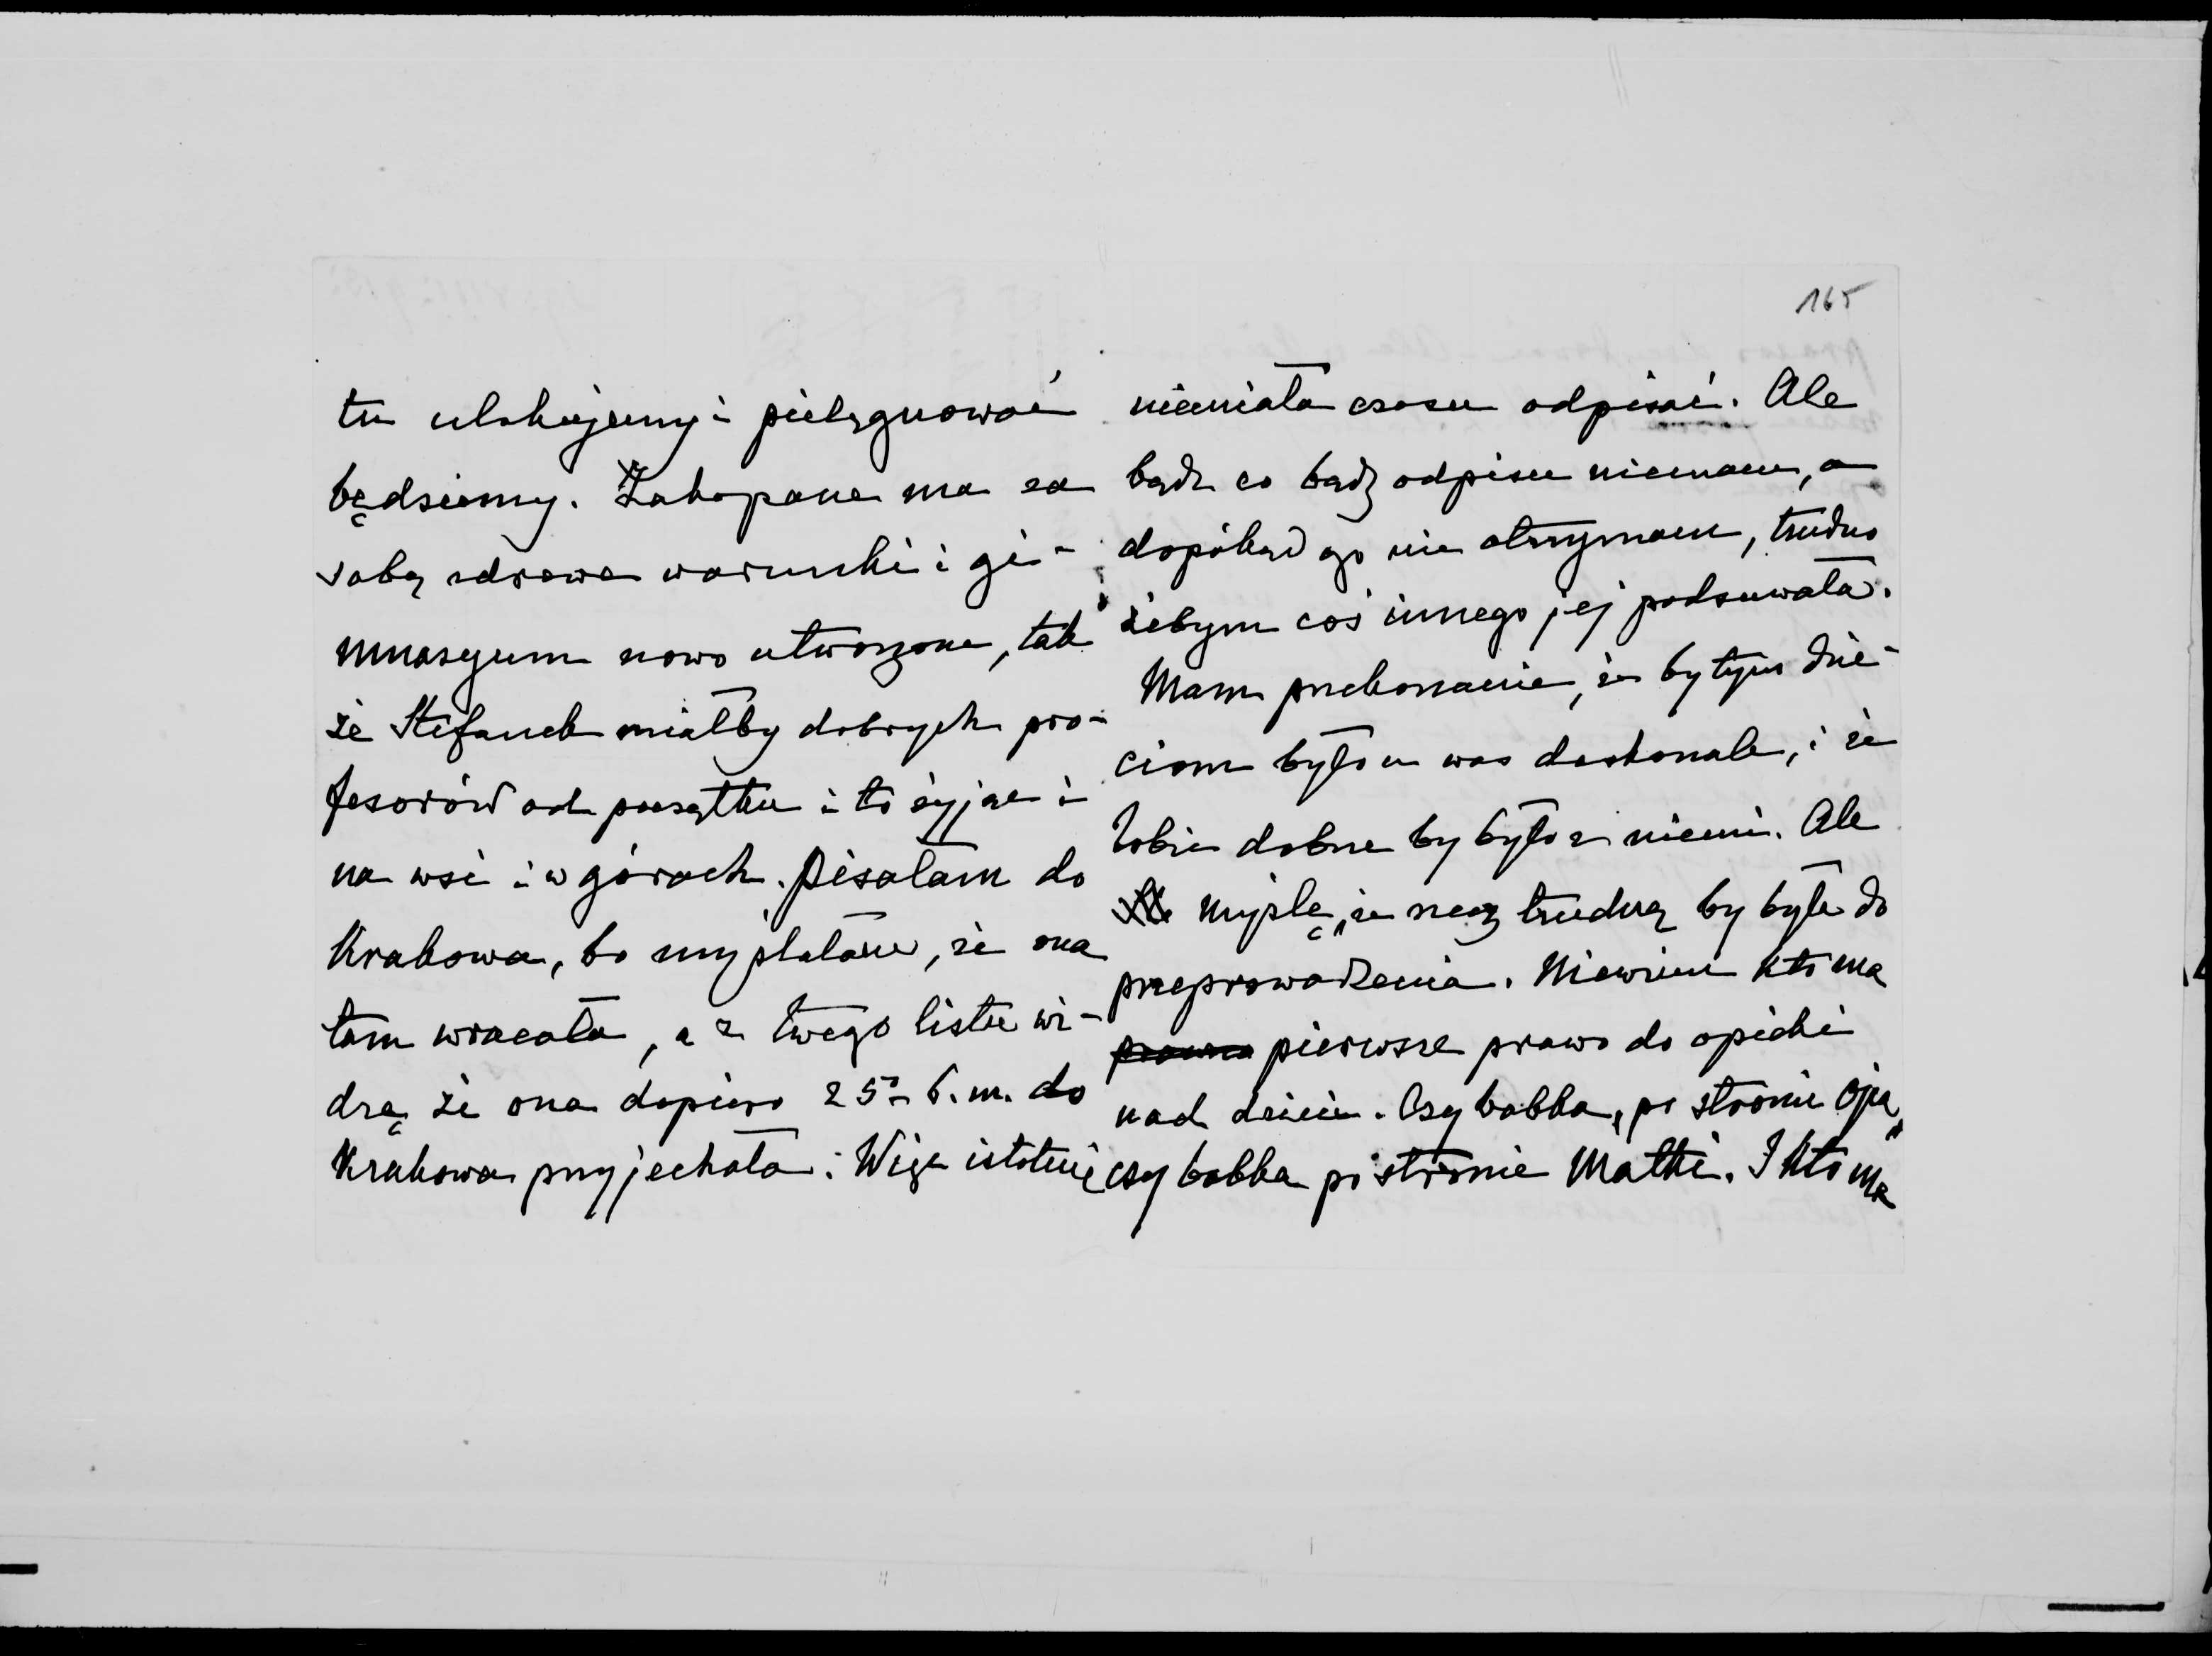 165
tu ulokujemy i pielęgnować
będziemy. Zakopane ma za
sobą zdrowe warunki i gi-
mnazyum nowo utworzone, tak
że Stefanek miałby dobrych pro-
fesorów od początku i to żyjąc i
na wsi i w górach. Pisałam do
Krakowa, bo myślałam, że ona
tam wracała, a z twego listu wi-
dzę że ona dopiero 25º b.m. do
Krakowa przyjechała. Więc istotnie
niemiała czasu odpisać. Ale
bądź co bądź odpisu niemam, a
dopókąd go nie otrzymam, trudno
żebym coś innego jej podsuwała.
Mam przekonanie, że by tym dzie-
ciom było u was doskonale, i że
Tobie dobrze by było z niemi. Ale
myślę, że rzeczą trudną by było do
przeprowadzenia. Niewiem kto ma
prawo pierwsze prawo do opieki
nad dziećm. Czy babka, po stronie Ojca,
czy babka po stronie Matki. I kto ma